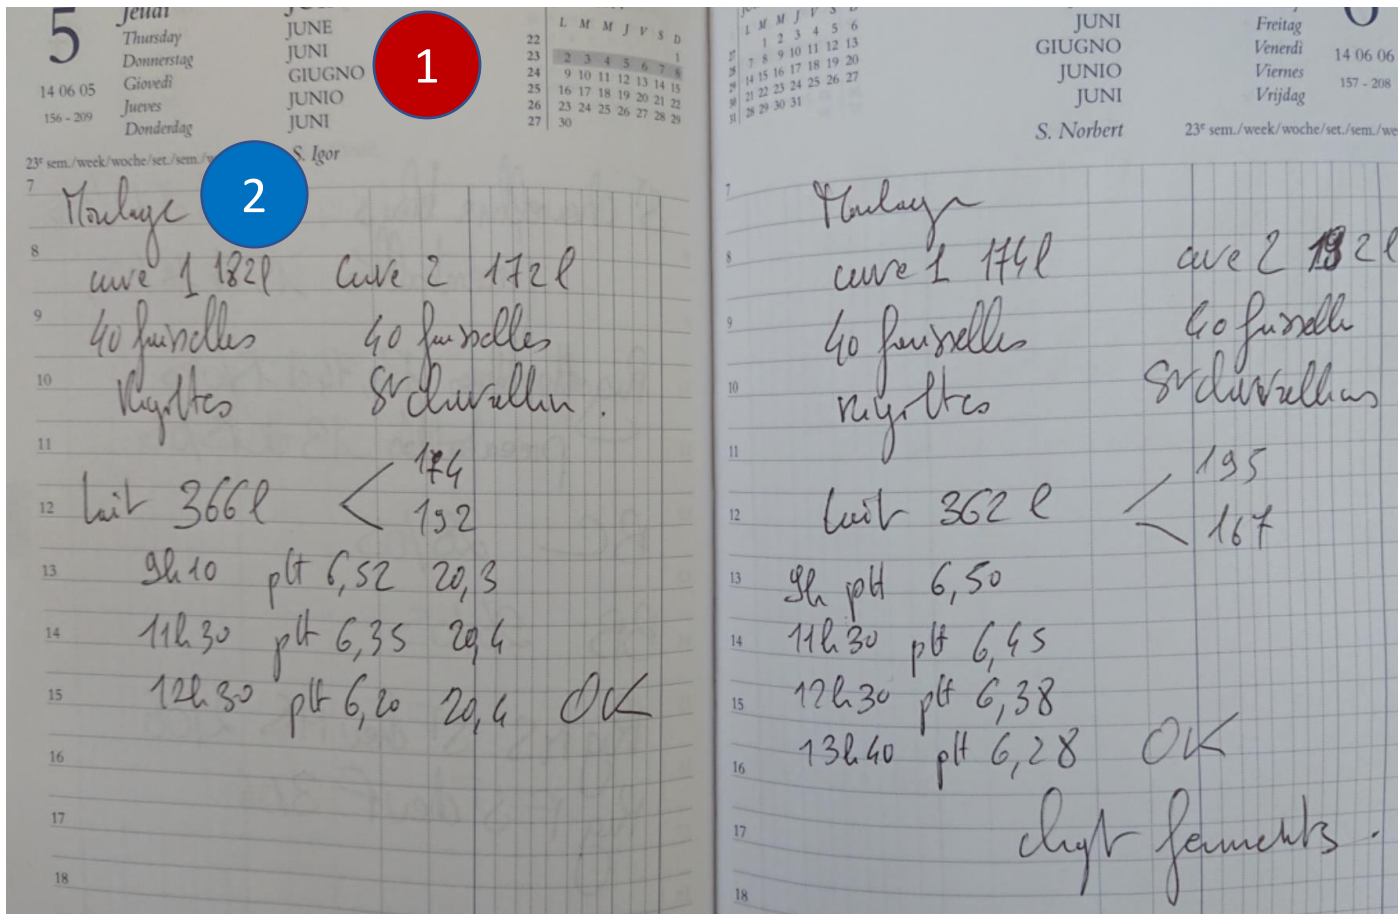 5
Jeudi
Thursday
Donnerstag
Giovedì
Jueves
Donderdag
14 06 05
156 - 209
JUNE
JUNI
GIUGNO
JUNIO
JUNI
S. Igor
1
2
L M M J V S D
22 1
23 2 3 4 5 6 7 8
24 9 10 11 12 13 14 15
25 16 17 18 19 20 21 22
26 23 24 25 26 27 28 29
27 30
23e sem./week/woche/set./sem./w
7
Moulage
8
cuve 1 182l cuve 2 172l
9
40 faisselles 40 faisselles
10
Rigottes St Marcellin.
11
174
12
lait 366l < 192
13
9h10 pH 6,52 20,3
14
11h30 pH 6,35 20,4
15
12h30 pH 6,20 20,4 OK
16
17
18
L M M J V S D
1 2 3 4 5 6
7 8 9 10 11 12 13
14 15 16 17 18 19 20
21 22 23 24 25 26 27
28 29 30 31
JUNI
GIUGNO
JUNIO
JUNI
S. Norbert
Freitag
Venerdì
Viernes
Vrijdag
14 06 06
157 - 208
23e sem./week/woche/set./sem./we
7
Moulage
8
cuve 1 174l cuve 2 192l
9
40 faisselles 40 faisselle
10
rigottes St Marcellins
11
195
12
lait 362l < 167
13
9h pH 6,50
14
11h30 pH 6,45
15
12h30 pH 6,38
16
13h40 pH 6,28 OK
17
chgt ferments.
18